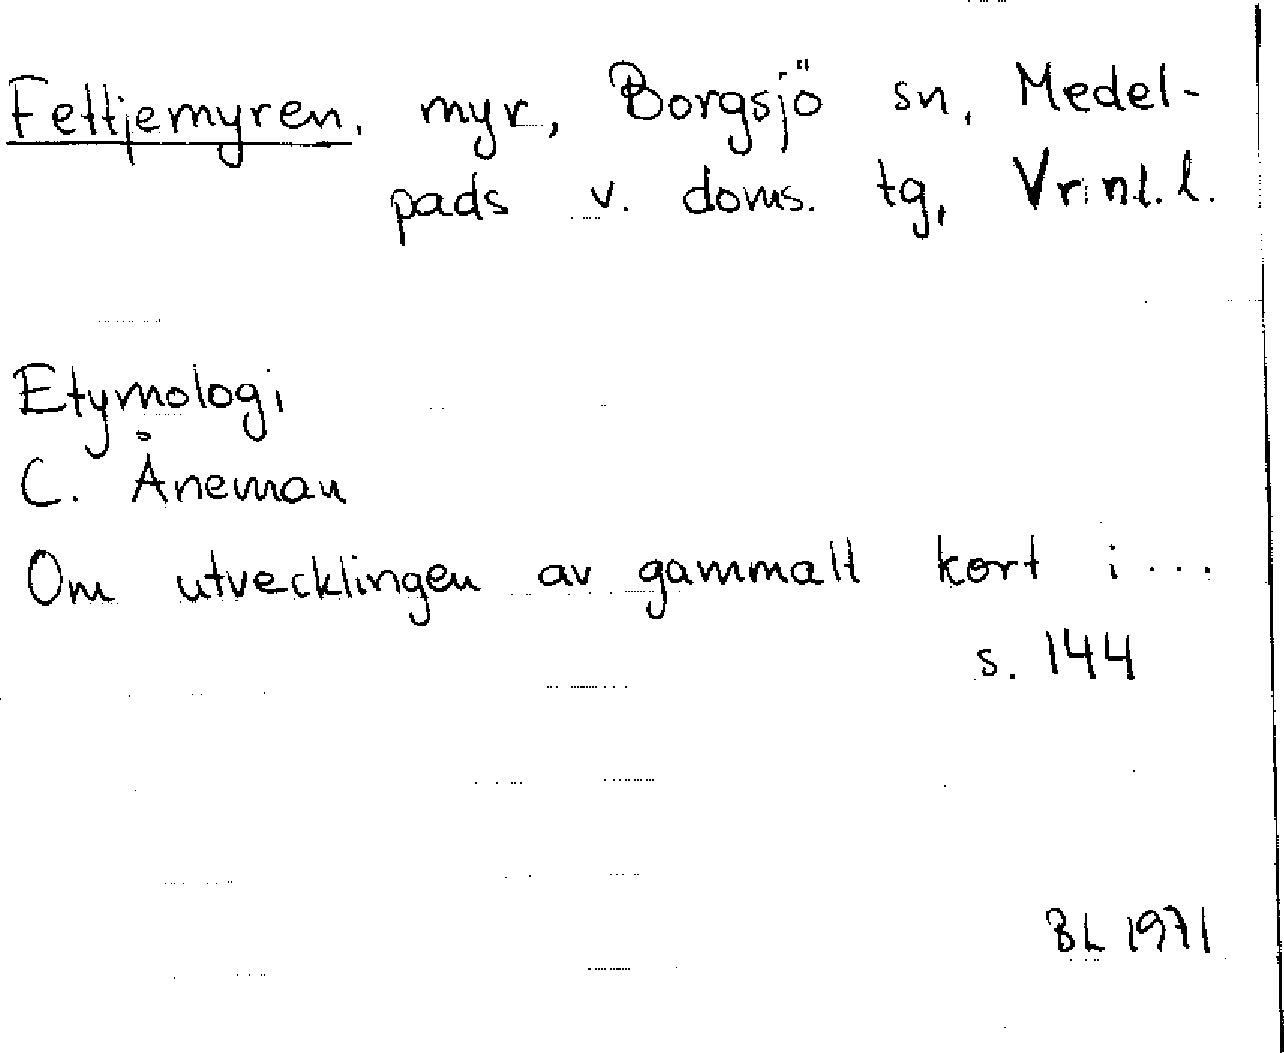 Fettjemyren, myr, Borgsjö sn, Medel-
pads v. doms. tg, Vrml. l.
Etymologi
C. Åneman
Om utvecklingen av gammalt kort i...
s. 144
BL 1971